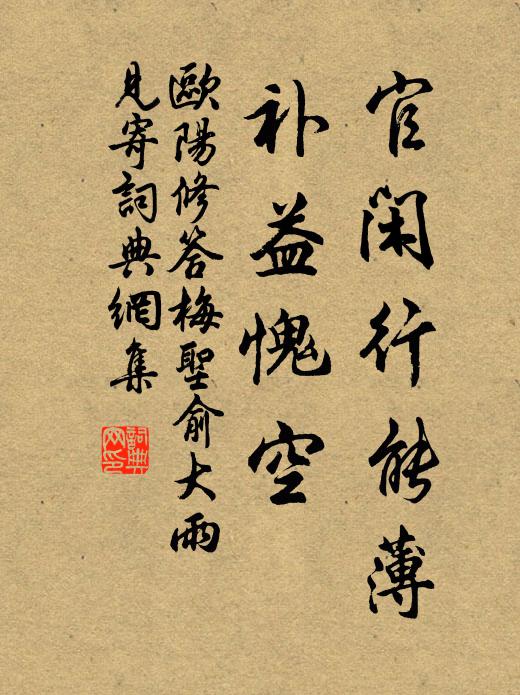 官閑行能薄
补益愧空
歐陽修答梅聖俞大雨
見寄詞典網集
詞典
网印